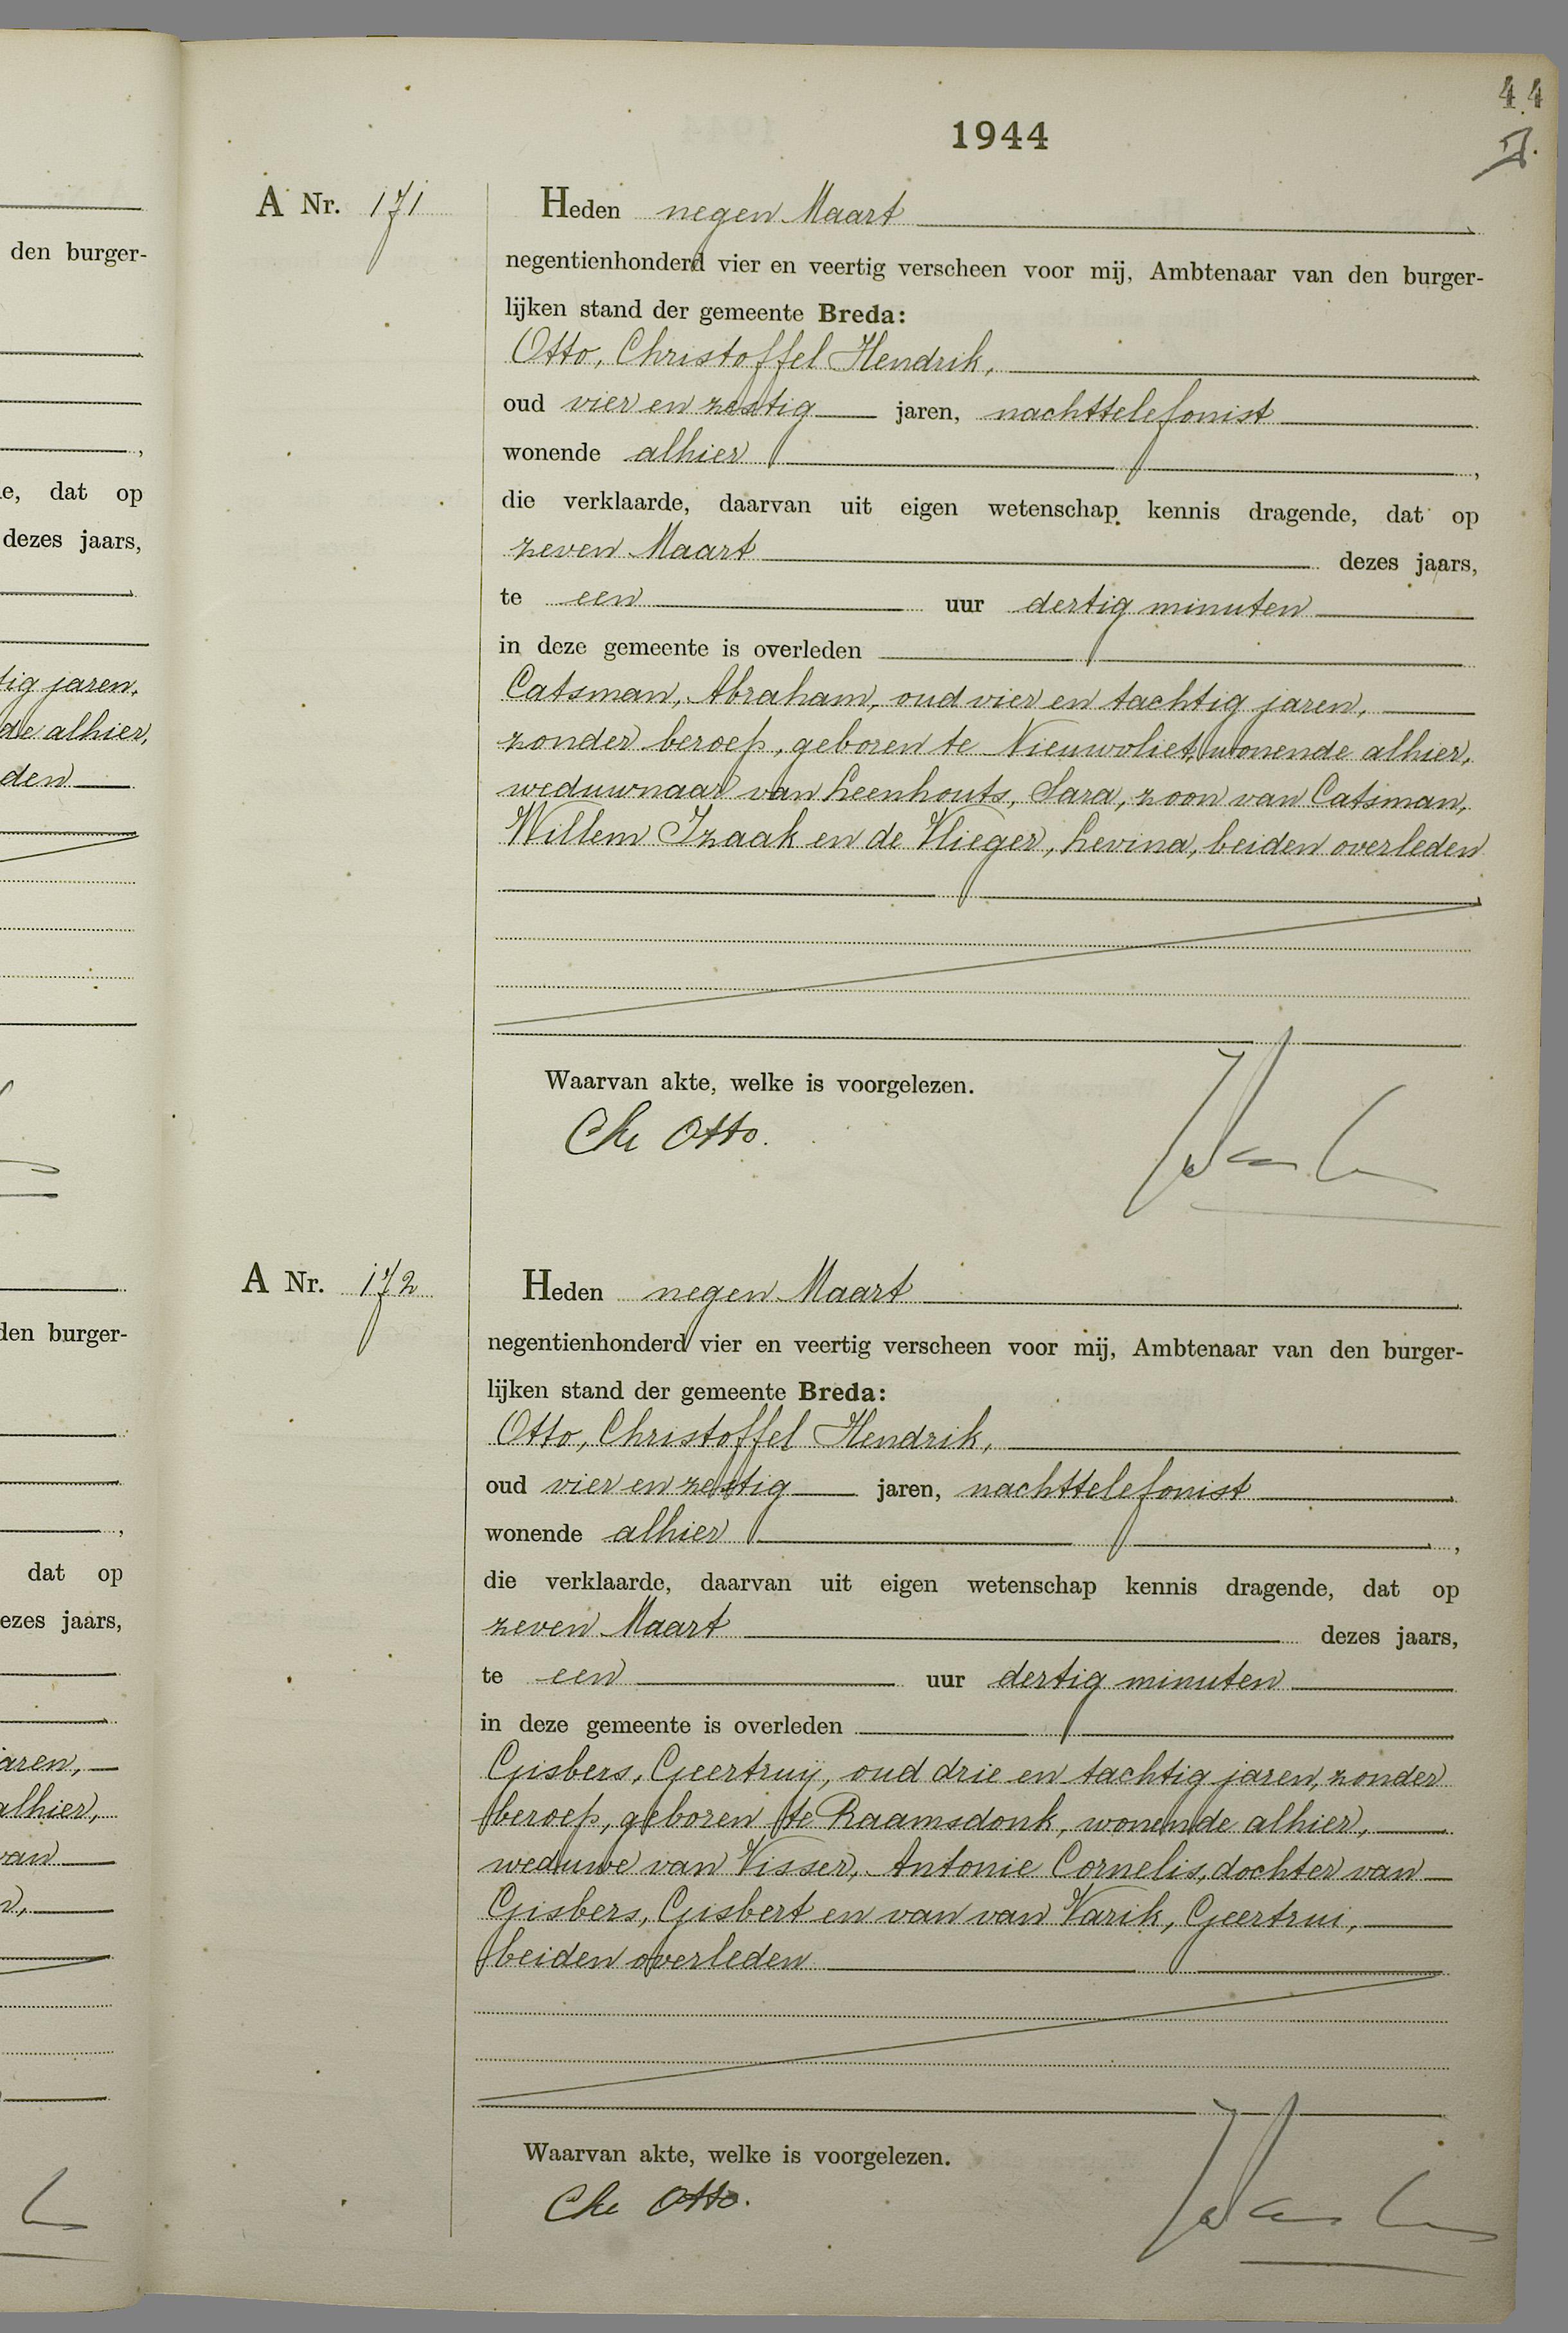 den burger-
e, dat op
dezes jaars,
tig jaren,
de alhier,
den
den burger-
dat op
ezes jaars,
jaren,
alhier,
van
44
1944
A Nr. 171
Heden negen Maart
negentienhonderd vier en veertig verscheen voor mij, Ambtenaar van den burger-
lijken stand der gemeente Breda:
Otto, Christoffel Hendrik,
oud vier en zestig jaren, nachttelefonist
wonende alhier ,
die verklaarde, daarvan uit eigen wetenschap kennis dragende, dat op
zeven Maart dezes jaars,
te een uur dertig minuten
in deze gemeente is overleden
Catsman, Abraham, oud vier en tachtig jaren,
zonder beroep, geboren te Nieuwvliet, wonende alhier,
weduwnaar van Leenhouts, Sara, zoon van Catsman,
Willem Izaak en de Vlieger, Levina, beiden overleden
Waarvan akte, welke is voorgelezen.
Ch Otto.
A Nr. 172
Heden negen Maart
negentienhonderd vier en veertig verscheen voor mij, Ambtenaar van den burger-
lijken stand der gemeente Breda:
Otto, Christoffel Hendrik,
oud vier en zestig jaren, nachttelefonist
wonende alhier ,
die verklaarde, daarvan uit eigen wetenschap kennis dragende, dat op
zeven Maart dezes jaars,
te een uur dertig minuten
in deze gemeente is overleden
Gisbers, Geertruij, oud drie en tachtig jaren, zonder
beroep, geboren te Raamsdonk, wonende alhier,
weduwe van Visser, Antonie Cornelis, dochter van
Gisbers, Gisbert en van van Varik, Geertrui,
beiden overleden
Waarvan akte, welke is voorgelezen.
Ch Otto.